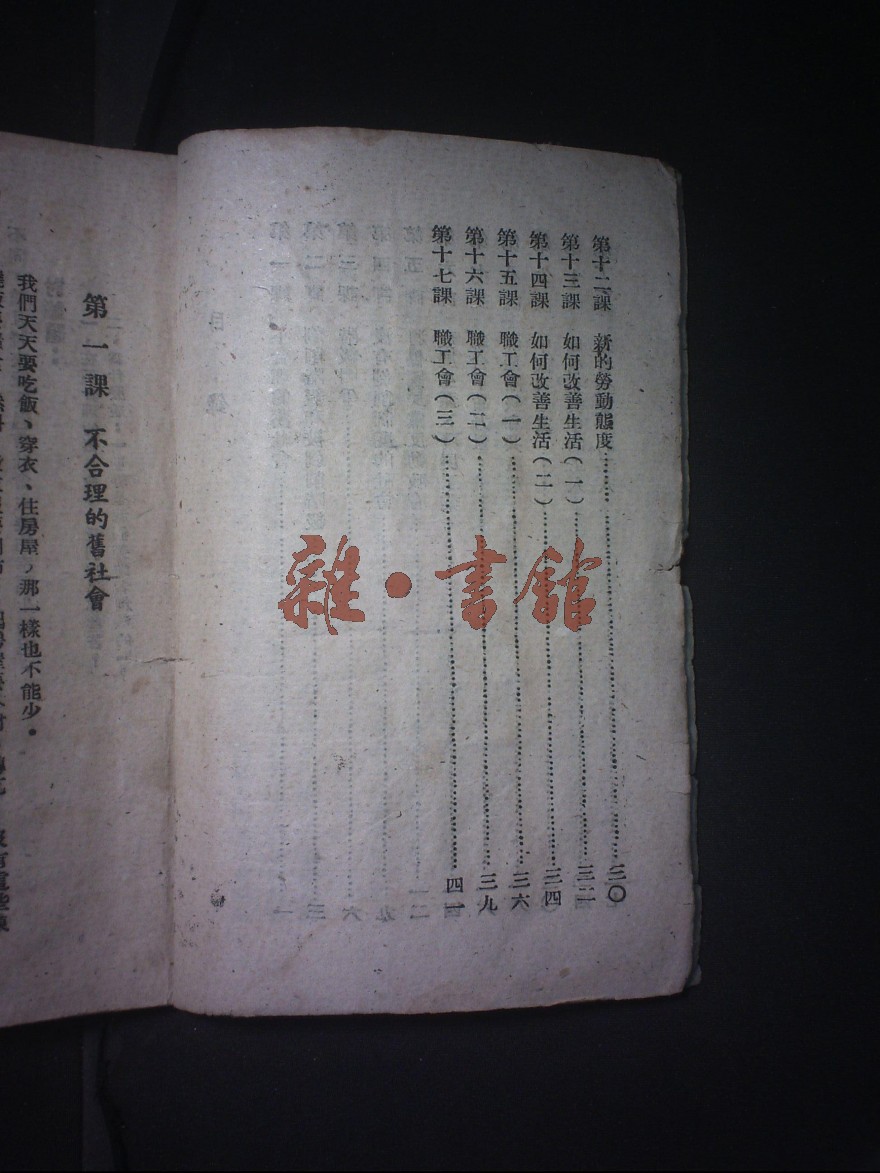 第十二課 新的勞動態度……三〇
第十三課 如何改善生活(一)……三二
第十四課 如何改善生活(二)……三四
第十五課 職工會(一)……三六
第十六課 職工會(二)……三九
第十七課 職工會(三)……四一
雜·書館
第一課 不合理的舊社會
我們天天要吃飯、穿衣、住房屋,那一樣也不能少。